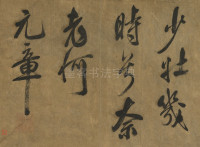 少壮幾
時兮奈
老何
元章